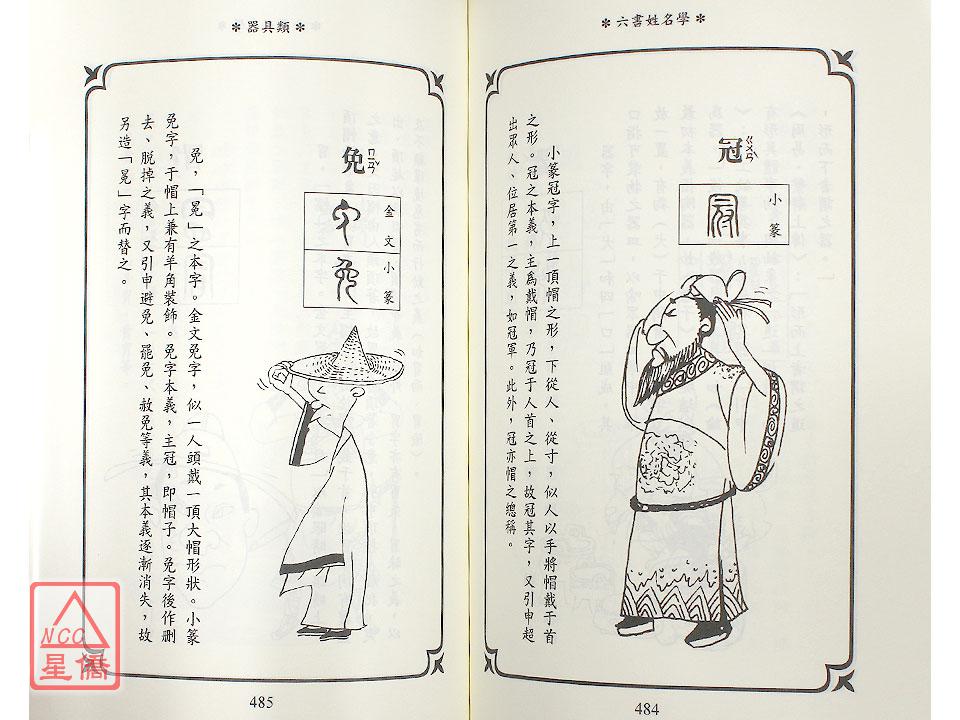 ＊六書姓名學＊
冠ㄍㄨㄢ
小篆
小篆冠字，上一頂帽之形，下從人、從寸，似人以手將帽戴于首
之形。冠之本義，主為戴帽，乃冠于人首之上，故冠其字，又引申超
出眾人、位居第一之義，如冠軍。此外，冠亦帽之總稱。
484
＊器具類＊
免ㄇㄧㄢˇ
金文
小篆
免，「冕」之本字。金文免字，似一人頭戴一頂大帽形狀。小篆
免字，于帽上兼有羊角裝飾。免字本義，主冠，即帽子。免字後作刪
去、脫掉之義，又引申避免、罷免、赦免等義，其本義逐漸消失，故
另造「冕」字而替之。
485
NCC
星僑